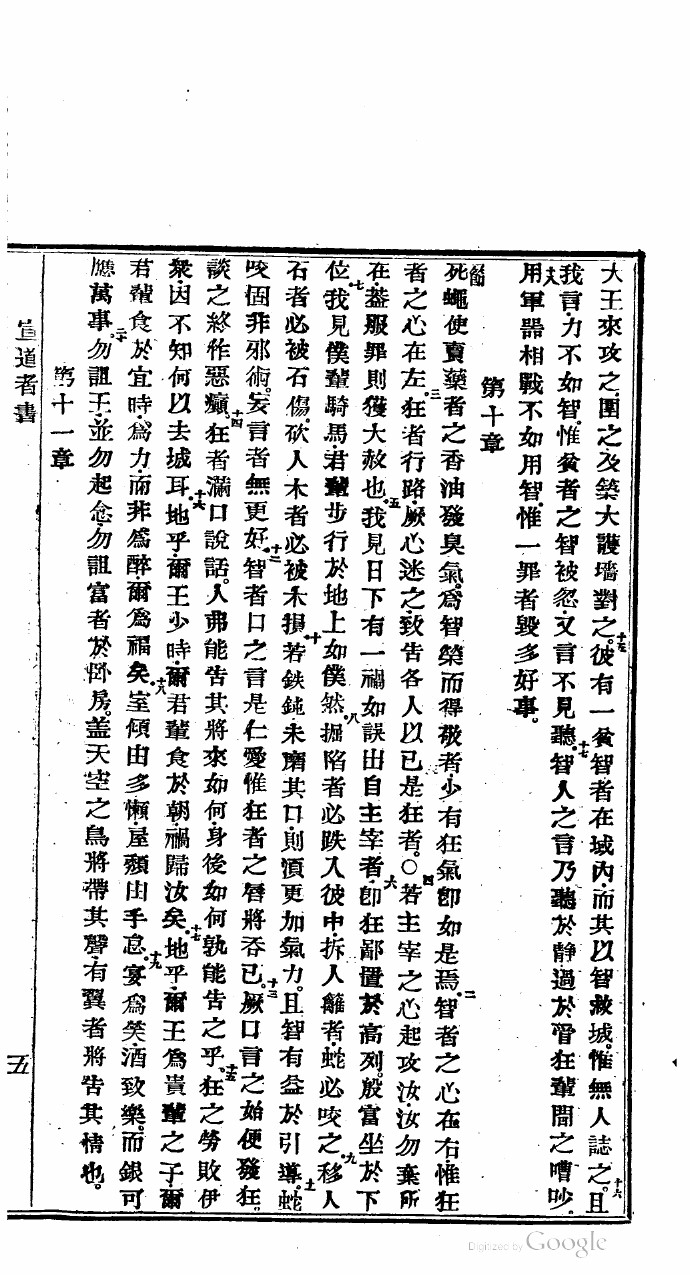 大王來攻之圍之及築大護墻對之。十五彼有一貧智者在城內而其以智救城。惟無人誌之。十六且
我言力不如智惟貧者之智被忽。又言不見聽。十七智人之言乃聽於靜過於管狂輩間之嘈吵。
十八用軍器相戰不如用智惟一罪者毀多好事。
第十章
一節死蠅使賣藥者之香油發臭氣。爲智榮而得敬者少有狂氣卽如是焉。二智者之心在右惟狂
者之心在左。三狂者行路厥心迷之致告各人以已是狂者。○四若主宰之心起攻汝汝勿棄所
在。蓋服罪則獲大赦也。五我見日下有一禍如誤出自主宰者。六卽狂鄙置於高列。殷富坐於下
位。七我見僕輩騎馬君輩步行於地上如僕然。八掘陷者必跌入彼中拆人籬者蛇必咬之。九移人
石者必被石傷。砍人木者必被木損。十若鉄鈍未磨其口則須更加氣力。且智有益於引導。十一蛇
咬固非邪術。妄言者無更好。十二智者口之言是仁愛惟狂者之唇將吞已。十三厥口言之始便發狂。
談之終作惡癲。十四狂者滿口說話。人弗能告其將來如何身後如何孰能告之乎。十五狂之勞敗伊
衆因不知何以去城耳。十六地乎爾王少時爾君輩食於朝禍歸汝矣。十七地乎爾王爲貴輩之子爾
君輩食於宜時爲力而非爲醉爾爲福矣。十八室傾由多懶屋頹由手怠。十九宴爲笑酒致樂。而銀可
應萬事。二十勿詛王並勿起念勿詛富者於卧房。蓋天空之鳥將帶其聲有翼者將告其情也。
第十一章
宣道者書
五
Digitized by Google